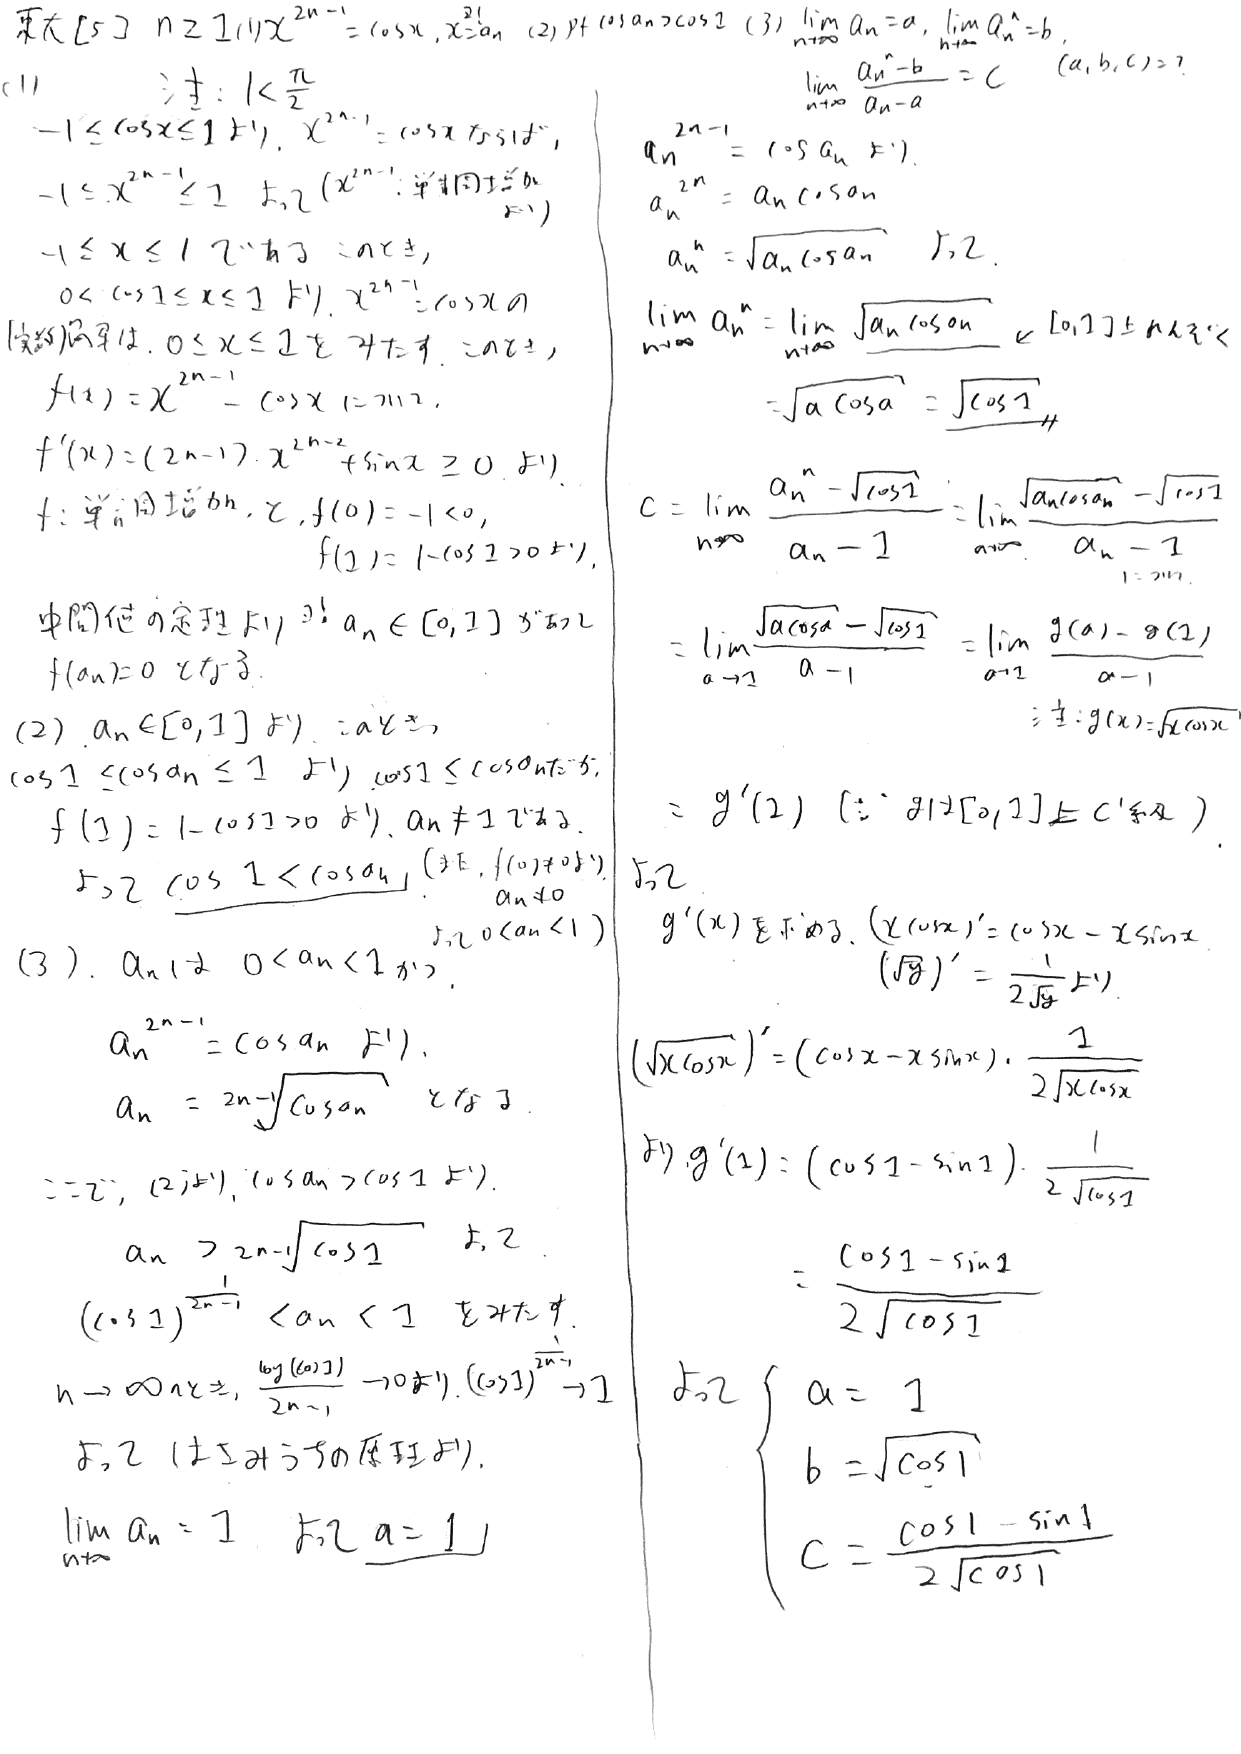 東大[5] n≧1 (1) x^{2n-1}=cosx, x=^{∃!}a_n (2) pf cos a_n>cos1 (3) lim_{n→∞} a_n=a, lim_{n→∞} a_n^n=b,
lim_{n→∞} (a_n^n-b)/(a_n-a) = C (a,b,c)=?
(1) 注: 1<π/2
-1≦cosx≦1 より, x^{2n-1}=cosx ならば,
-1≦x^{2n-1}≦1 よって (x^{2n-1}: 単調増加より)
-1≦x≦1 である このとき,
0<cos1≦x≦1 より, x^{2n-1}=cosx の
(実数)解は, 0≦x≦1をみたす このとき,
f(x)=x^{2n-1}-cosx について,
f'(x)=(2n-1)・x^{2n-2}+sinx≧0 より
f: 単調増加, と, f(0)=-1<0,
f(1)=1-cos1>0 より,
中間値の定理より ∃! a_n∈[0,1] があって
f(a_n)=0 となる.
(2) a_n∈[0,1] より このとき,
cos1≦cos a_n≦1 より cos1≦cos a_n だが,
f(1)=1-cos1>0 より, a_n≠1 である.
よって cos1<cos a_n (また, f(0)≠0より
a_n≠0
よって 0<a_n<1)
(3). a_nは 0<a_n<1 かつ
a_n^{2n-1}=cos a_n より,
a_n = ^{2n-1}√(cos a_n) となる.
ここで, (2)より, cos a_n>cos1 より.
a_n > ^{2n-1}√(cos1) よって
(cos1)^{1/(2n-1)} < a_n < 1 をみたす.
n→∞のとき, log(cos1)/(2n-1) →0より, (cos1)^{1/(2n-1)}→1
よって はさみうちの原理より.
lim_{n→∞} a_n = 1 よって a=1
a_n^{2n-1}=cos a_n より.
a_n^{2n} = a_n cos a_n
a_n^n = √(a_n cos a_n) よって.
lim_{n→∞} a_n^n = lim_{n→∞} √(a_n cos a_n) ↙ [0,1]上れんぞく
=√(a cos a) = √(cos1)
C = lim_{n→∞} (a_n^n-√(cos1))/(a_n-1) = lim_{n→∞} (√(a_n cos a_n)-√(cos1))/(a_n-1) について
= lim_{a→1} (√(a cos a)-√(cos1))/(a-1) = lim_{a→1} (g(a)-g(1))/(a-1)
注: g(x)=√(x cosx)
= g'(1) (∵ gは[0,1]上C^1級).
よって
g'(x)を求める. (x cosx)'=cosx-x sinx.
(√y)'=1/(2√y) より
(√(x cosx))'=(cosx-x sinx)・1/(2√(x cosx))
より g'(1)=(cos1-sin1)・1/(2√(cos1))
= (cos1-sin1)/(2√(cos1))
よって { a = 1
b = √(cos1)
C = (cos1-sin1)/(2√(cos1))